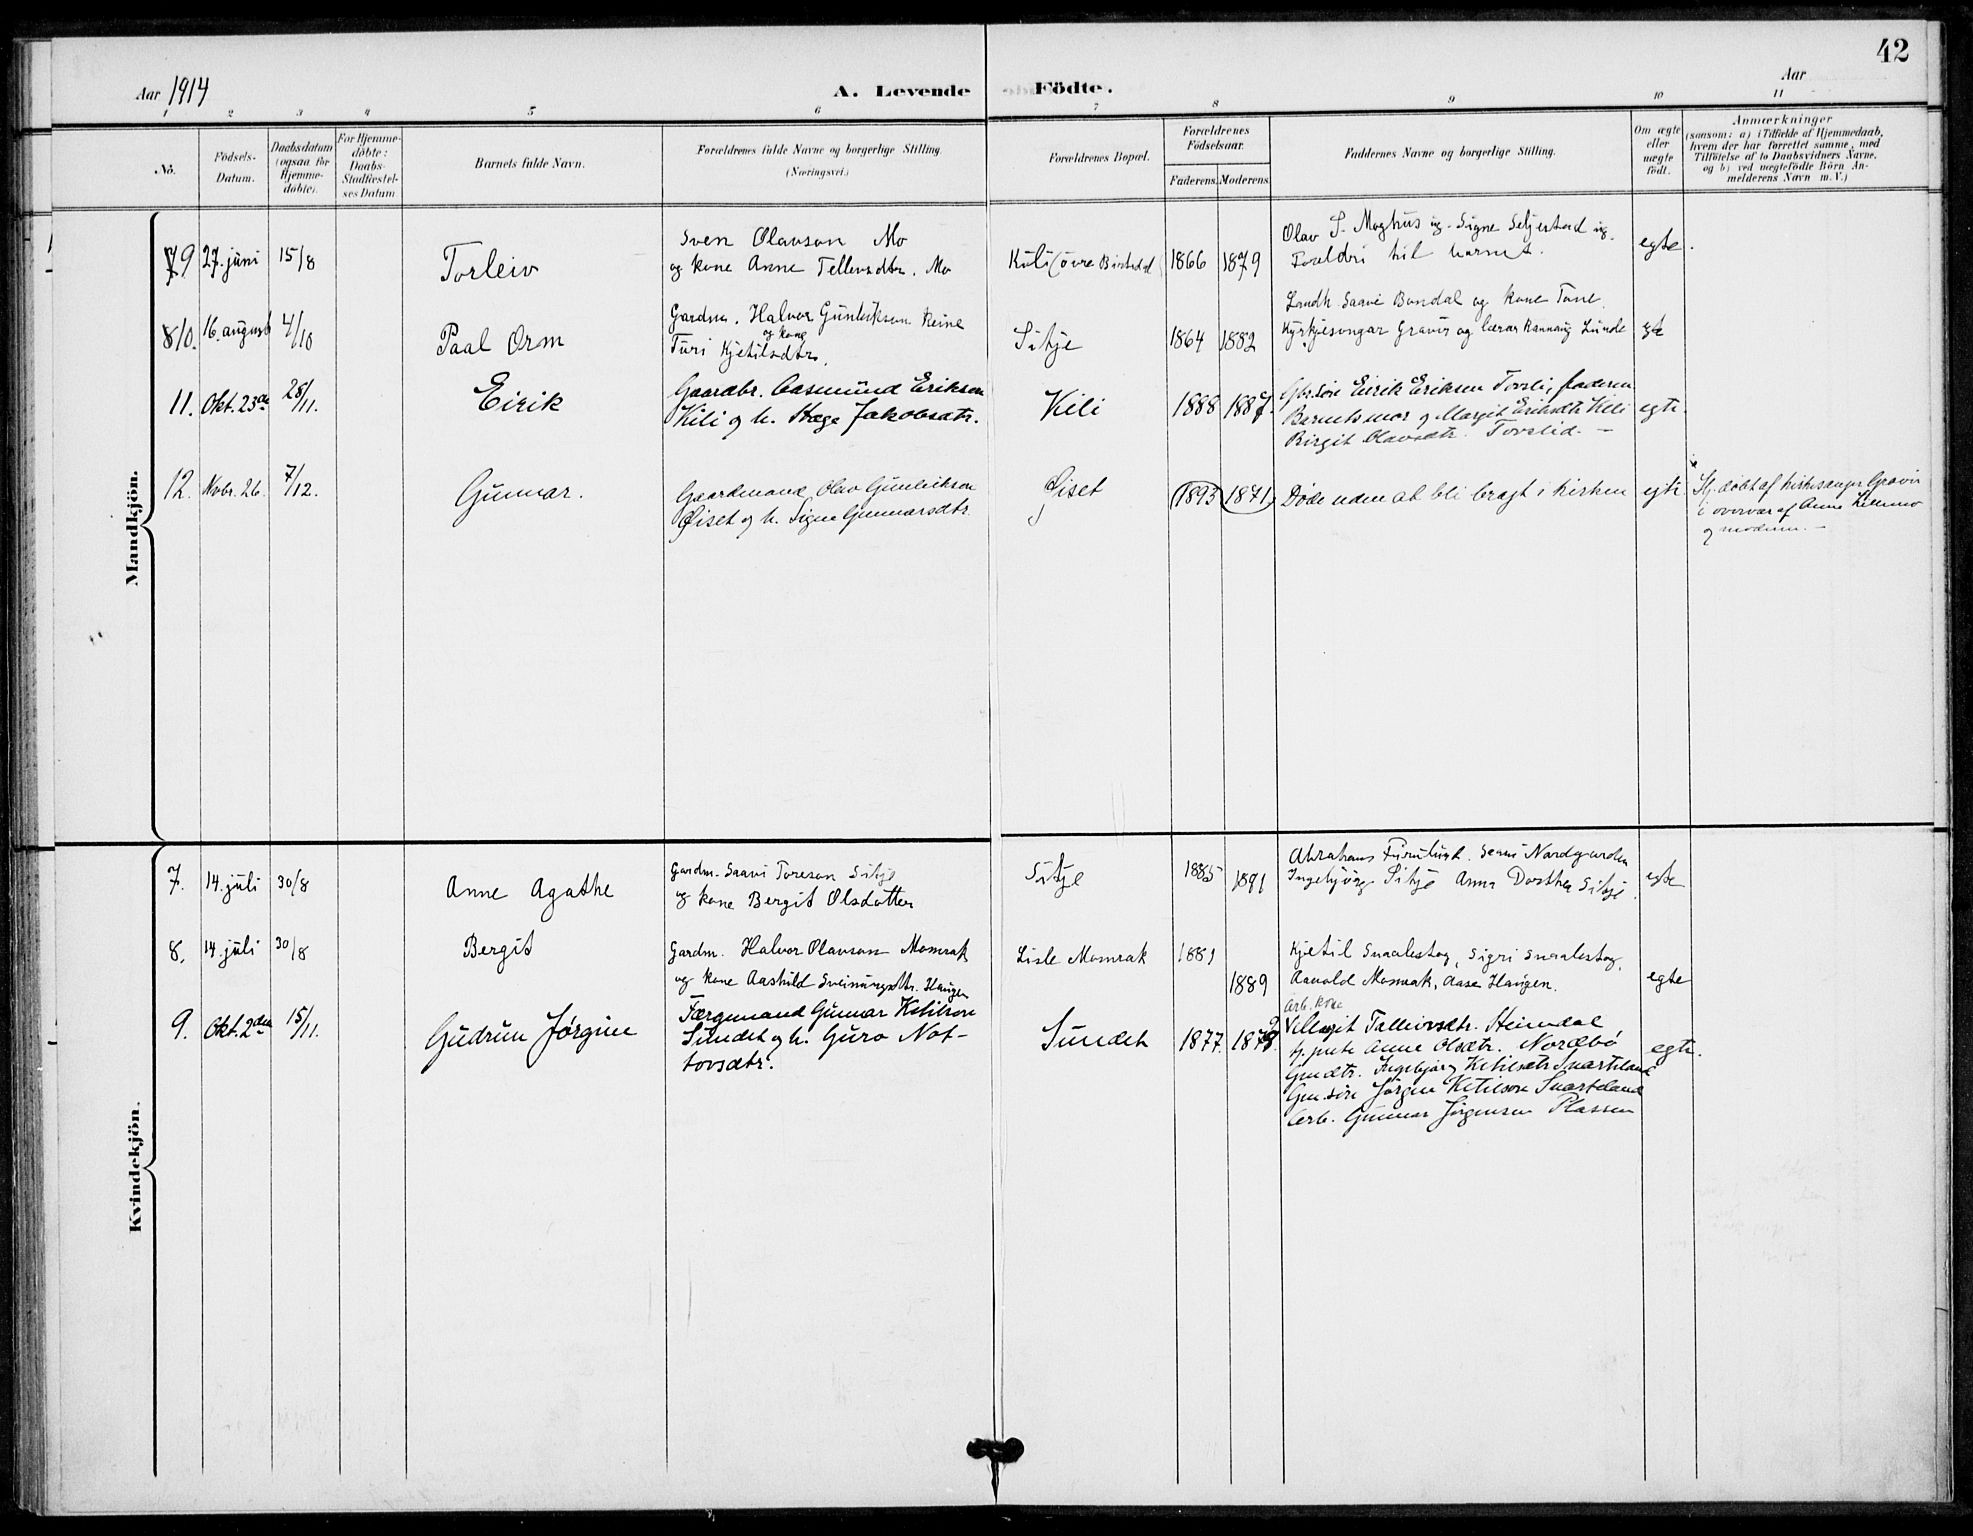 42
Aar 1914
A. Levende Födte.
Aar
1 2 3 4 5 6 7 8 9 10 11
No.
Födsels-Datum.
Daabsdatum (ogsaa for Hjemme-döbte).
For Hjemme-döbte: Daabs-Stadfæstel-ses Datum
Barnets fulde Navn.
Forældrenes fulde Navne og borgerlige Stilling.
(Næringsvei.)
Forældrenes Bopæl.
Forældrenes Födselsaar.
Faderens. Moderens.
Faddernes Navne og borgerlige Stilling.
Om ægte eller uægte födt.
Anmærkninger
(saasom: a) i Tilfælde af Hjemmedaab,
hvem der har forrettet samme, med
Tilföielse af to Daabsvidners Navne,
og b) ved uægtefödte Börn An-
melderens Navn m. V.)
Mandkjön.
9 27. juni 15/8 Torleiv
Sven Olavson Mo
og kone Anne Tellevsdtr. Mo
Kili (övre Birtedal) 1866 1879
Olav S. Moghus ig. Signe Seljestad ig.
Foreldri til barnet.
egte.
10. 16. august 4/10 Paal Orm
Gardm. Halvor Gunleikson Reine
og kone
Turi Kjetilsdtr.
Sitje 1864 1882
Landh. Saavi Bondal og kone Tone.
Kyrkjesongar Gravir og lærar Rannaug Lunde
egte
11. Okt. 23de 28/11. Eirik
Gaardbr. Aasmund Eriksen
Kili og h. Hæge Jakobsdtr.
Kili 1888 1887.
Gbr.søn Eirik Eriksen Tovsli, faderen
Barnets mor og Margit Eriksdtr Kili
Birgit Olavsdtr. Tovslid. —
egte.
12. Nvbr. 26. 7/12. Gunnar.
Gaardmand Olav Gunleikson
Øiset og h. Signe Gunnarsdtr.
Øiset 1893 1871
Døde uden at bli bragt i kirken
egte
Hj. døbt af kirkesanger Gravir
i overvær af Anne
og moderen. —
Kvindekjön.
7. 14. juli 30/8 Anne Agathe
Gardm. Saavi Toreson Sitje
og kone Bergit Olsdotter
Sitje 1885 1891
Abrahams Nordgarden
Ingebjörg Sitje Anna Dorthea Sitje.
egte
8. 14. juli 30/8 Bergit
Gardm. Halvor Olavson Momrak
og kone Aashild Sveinungsdtr. Haugen
Lisle Momrak 1881 1889
Kjetil Snaalestog, Sigri Snaalestog,
Aanold Momrak, Aase Haugen.
egte
9. Okt. 2den 15/11. Gudrun Jørgine
Færgemand Gunnar Ketilson
Sundet og h. Guro Not-
tovsdtr.
Sundet 1877. 1872
Arb. kone
Vellaug Tallevsdtr. Heimdal,
Tj. pike Anne Olsdtr. Nordbø
Gmdtr. Ingebjørg Ketilsdtr Svarteland
Gm.søn Jørgen Ketilson Svarteland
Arb. Gunnar Jørgensen Plassen
egte.